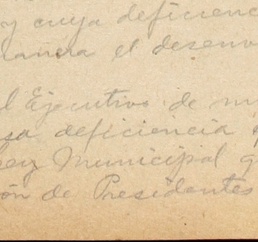 y cuya deficienc
anera el desenv
l Ejecutivo de
sa deficiencia
Ley Municipal
ón de Presidentes